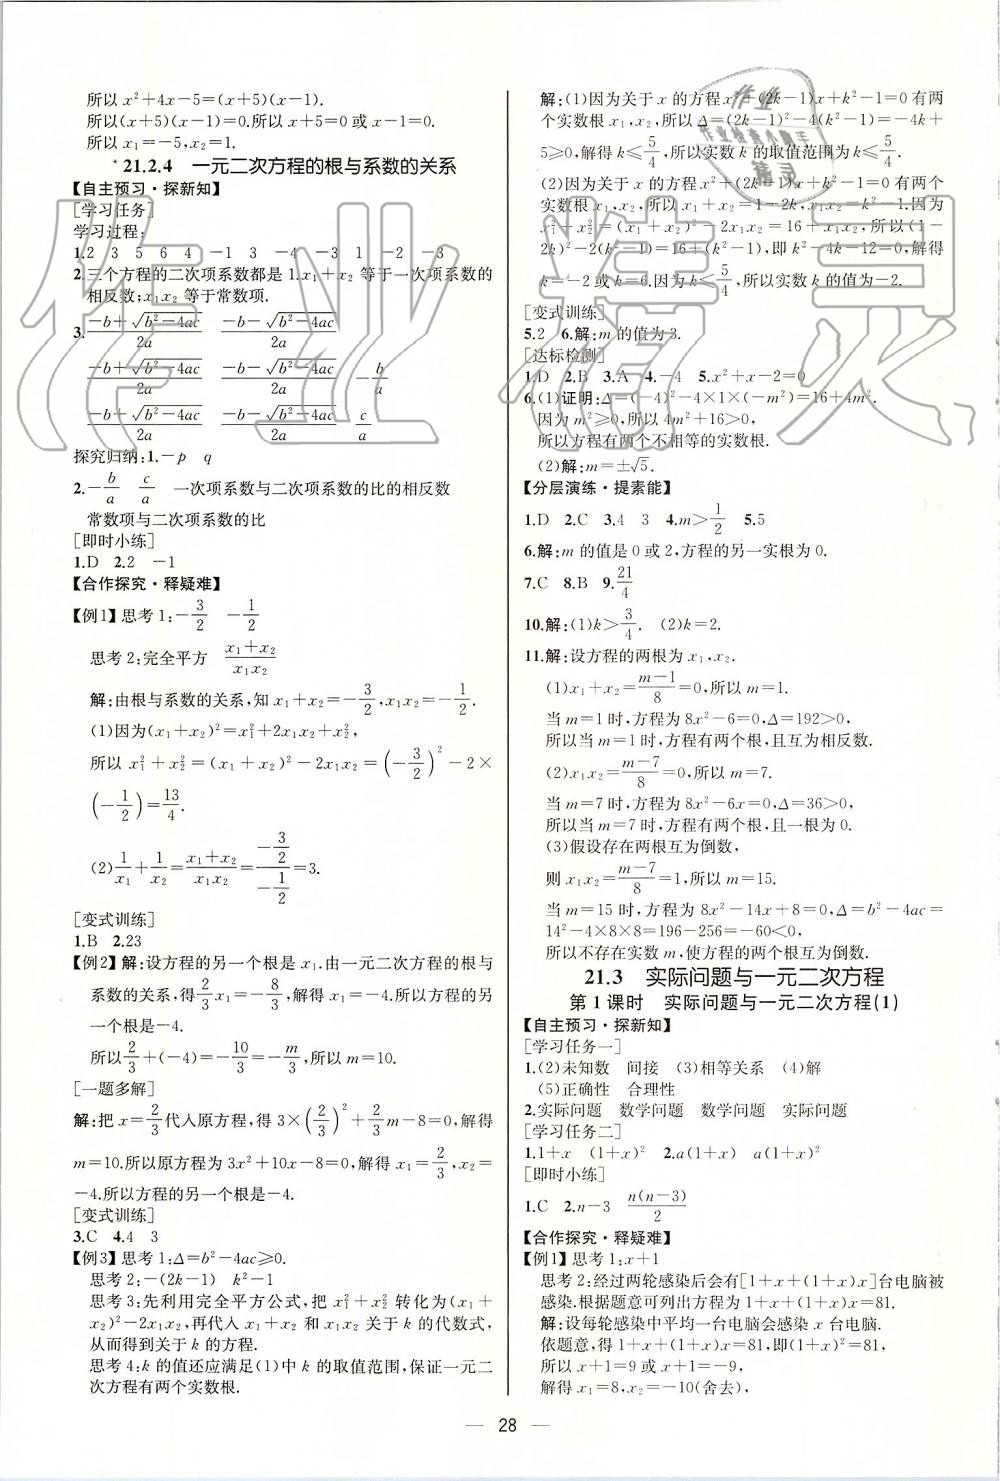 所以 x²+4x-5=(x+5)(x-1).
所以(x+5)(x-1)=0.所以 x+5=0 或 x-1=0.
所以 x₁=-5,x₂=1.
*21.2.4 一元二次方程的根与系数的关系
【自主预习·探新知】
[学习任务]
学习过程:
1.2 3 5 6 4 -1 3 -4 -3 -2 -3
2.三个方程的二次项系数都是 1.x₁+x₂ 等于一次项系数的
相反数;x₁x₂ 等于常数项.
3.(-b+√(b²-4ac))/2a (-b-√(b²-4ac))/2a
(-b+√(b²-4ac))/2a (-b-√(b²-4ac))/2a -b/a
(-b+√(b²-4ac))/2a (-b-√(b²-4ac))/2a c/a
探究归纳:1.-p q
2.-b/a c/a 一次项系数与二次项系数的比的相反数
常数项与二次项系数的比
[即时小练]
1.D 2.2 -1
【合作探究·释疑难】
【例1】思考 1:-3/2 -1/2
思考 2:完全平方 (x₁+x₂)/(x₁x₂)
解:由根与系数的关系,知 x₁+x₂=-3/2,x₁x₂=-1/2.
(1)因为(x₁+x₂)²=x₁²+2x₁x₂+x₂²,
所以 x₁²+x₂²=(x₁+x₂)²-2x₁x₂=(-3/2)²-2×
(-1/2)=13/4.
(2)1/x₁+1/x₂=(x₁+x₂)/(x₁x₂)=(-3/2)/(-1/2)=3.
[变式训练]
1.B 2.23
【例2】解:设方程的另一个根是 x₁.由一元二次方程的根与
系数的关系,得2/3x₁=-8/3,解得 x₁=-4.所以方程的另
一个根是-4.
所以2/3+(-4)=-10/3=-m/3,所以 m=10.
[一题多解]
解:把 x=2/3代入原方程,得 3×(2/3)²+2/3m-8=0,解得
m=10.所以原方程为 3x²+10x-8=0,解得 x₁=2/3,x₂=
-4.所以方程的另一个根是-4.
[变式训练]
3.C 4.4 3
【例3】思考 1:Δ=b²-4ac≥0.
思考 2:-(2k-1) k²-1
思考 3:先利用完全平方公式,把 x₁²+x₂² 转化为(x₁+
x₂)²-2x₁x₂,再代入 x₁+x₂ 和 x₁x₂ 关于 k 的代数式,
从而得到关于 k 的方程.
思考 4:k 的值还应满足(1)中 k 的取值范围,保证一元二
次方程有两个实数根.
解:(1)因为关于 x 的方程 x²+(2k-1)x+k²-1=0 有两
个实数根 x₁,x₂,所以 Δ=(2k-1)²-4(k²-1)=-4k+
5≥0,解得 k≤5/4,所以实数 k 的取值范围为 k≤5/4.
(2)因为关于 x 的方程 x²+(2k-1)x+k²-1=0 有两个
实数根 x₁,x₂,所以 x₁+x₂=1-2k,x₁x₂=k²-1.因为
x₁²+x₂²=(x₁+x₂)²-2x₁x₂=16+x₁x₂,所以(1-
2k)²-2(k²-1)=16+(k²-1),即 k²-4k-12=0,解得
k=-2 或 k=6.因为 k≤5/4,所以实数 k 的值为-2.
[变式训练]
5.2 6.解:m 的值为 3.
[达标检测]
1.D 2.B 3.A 4.-4 5.x²+x-2=0
6.(1)证明:Δ=(-4)²-4×1×(-m²)=16+4m².
因为 m²≥0,所以 4m²+16>0.
所以方程有两个不相等的实数根.
(2)解:m=±√5.
【分层演练·提素能】
1.D 2.C 3.4 3 4.m>1/2 5.5
6.解:m 的值是 0 或 2,方程的另一实根为 0.
7.C 8.B 9.21/4
10.解:(1)k>3/4. (2)k=2.
11.解:设方程的两根为 x₁,x₂.
(1)x₁+x₂=(m-1)/8=0,所以 m=1.
当 m=1 时,方程为 8x²-6=0,Δ=192>0,
所以当 m=1 时,方程有两个根,且互为相反数.
(2)x₁x₂=(m-7)/8=0,所以 m=7.
当 m=7 时,方程为 8x²-6x=0,Δ=36>0,
所以当 m=7 时,方程有两个根,且一根为 0.
(3)假设存在两根互为倒数,
则 x₁x₂=(m-7)/8=1,所以 m=15.
当 m=15 时,方程为 8x²-14x+8=0,Δ=b²-4ac=
14²-4×8×8=196-256=-60<0,
所以不存在实数 m,使方程的两个根互为倒数.
21.3 实际问题与一元二次方程
第 1 课时 实际问题与一元二次方程(1)
【自主预习·探新知】
[学习任务一]
1.(2)未知数 间接 (3)相等关系 (4)解
(5)正确性 合理性
2.实际问题 数学问题 数学问题 实际问题
[学习任务二]
1.1+x (1+x)² 2.a(1+x) a(1+x)²
[即时小练]
1.C 2.n-3 n(n-3)/2
【合作探究·释疑难】
【例1】思考 1:x+1
思考 2:经过两轮感染后会有[1+x+(1+x)x]台电脑被
感染.根据题意可列出方程为 1+x+(1+x)x=81.
解:设每轮感染中平均一台电脑会感染 x 台电脑.
依题意,得 1+x+(1+x)x=81,即(1+x)²=81,
所以 x+1=9 或 x+1=-9,
解得 x₁=8,x₂=-10(舍去),
— 28 —
作业精灵
作业
作业检查小帮手
精灵